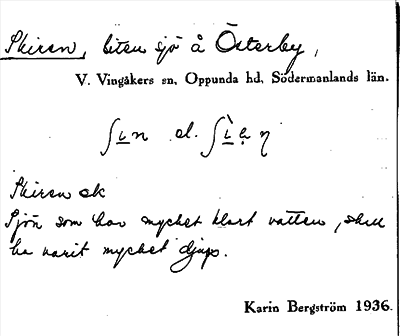 Skiren, liten sjö å Österby,
V. Vingåkers sn, Oppunda hd, Södermanlands län.
ʃɩn el. ʃɩ̀ə̣ṇ
Skiren ek
Sjön som har mycket klart vatten, skall
ha varit mycket djup.
Karin Bergström 1936.